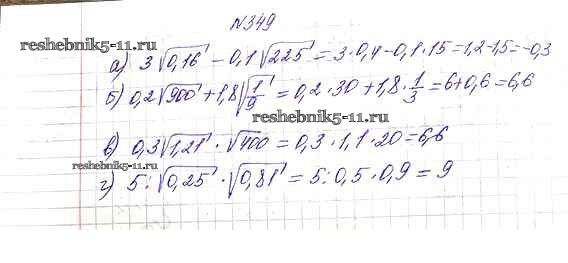 №349
reshebnik5-11.ru
а) 3√0,16 − 0,1√225 = 3·0,4−0,1·15=1,2−1,5=−0,3
б) 0,2√900 + 1,8√1/9 = 0,2·30+1,8·1/3=6+0,6=6,6
reshebnik5-11.ru
в) 0,3√1,21 · √400 = 0,3·1,1·20=6,6
reshebnik5-11.ru
г) 5:√0,25 · √0,81 = 5:0,5·0,9=9